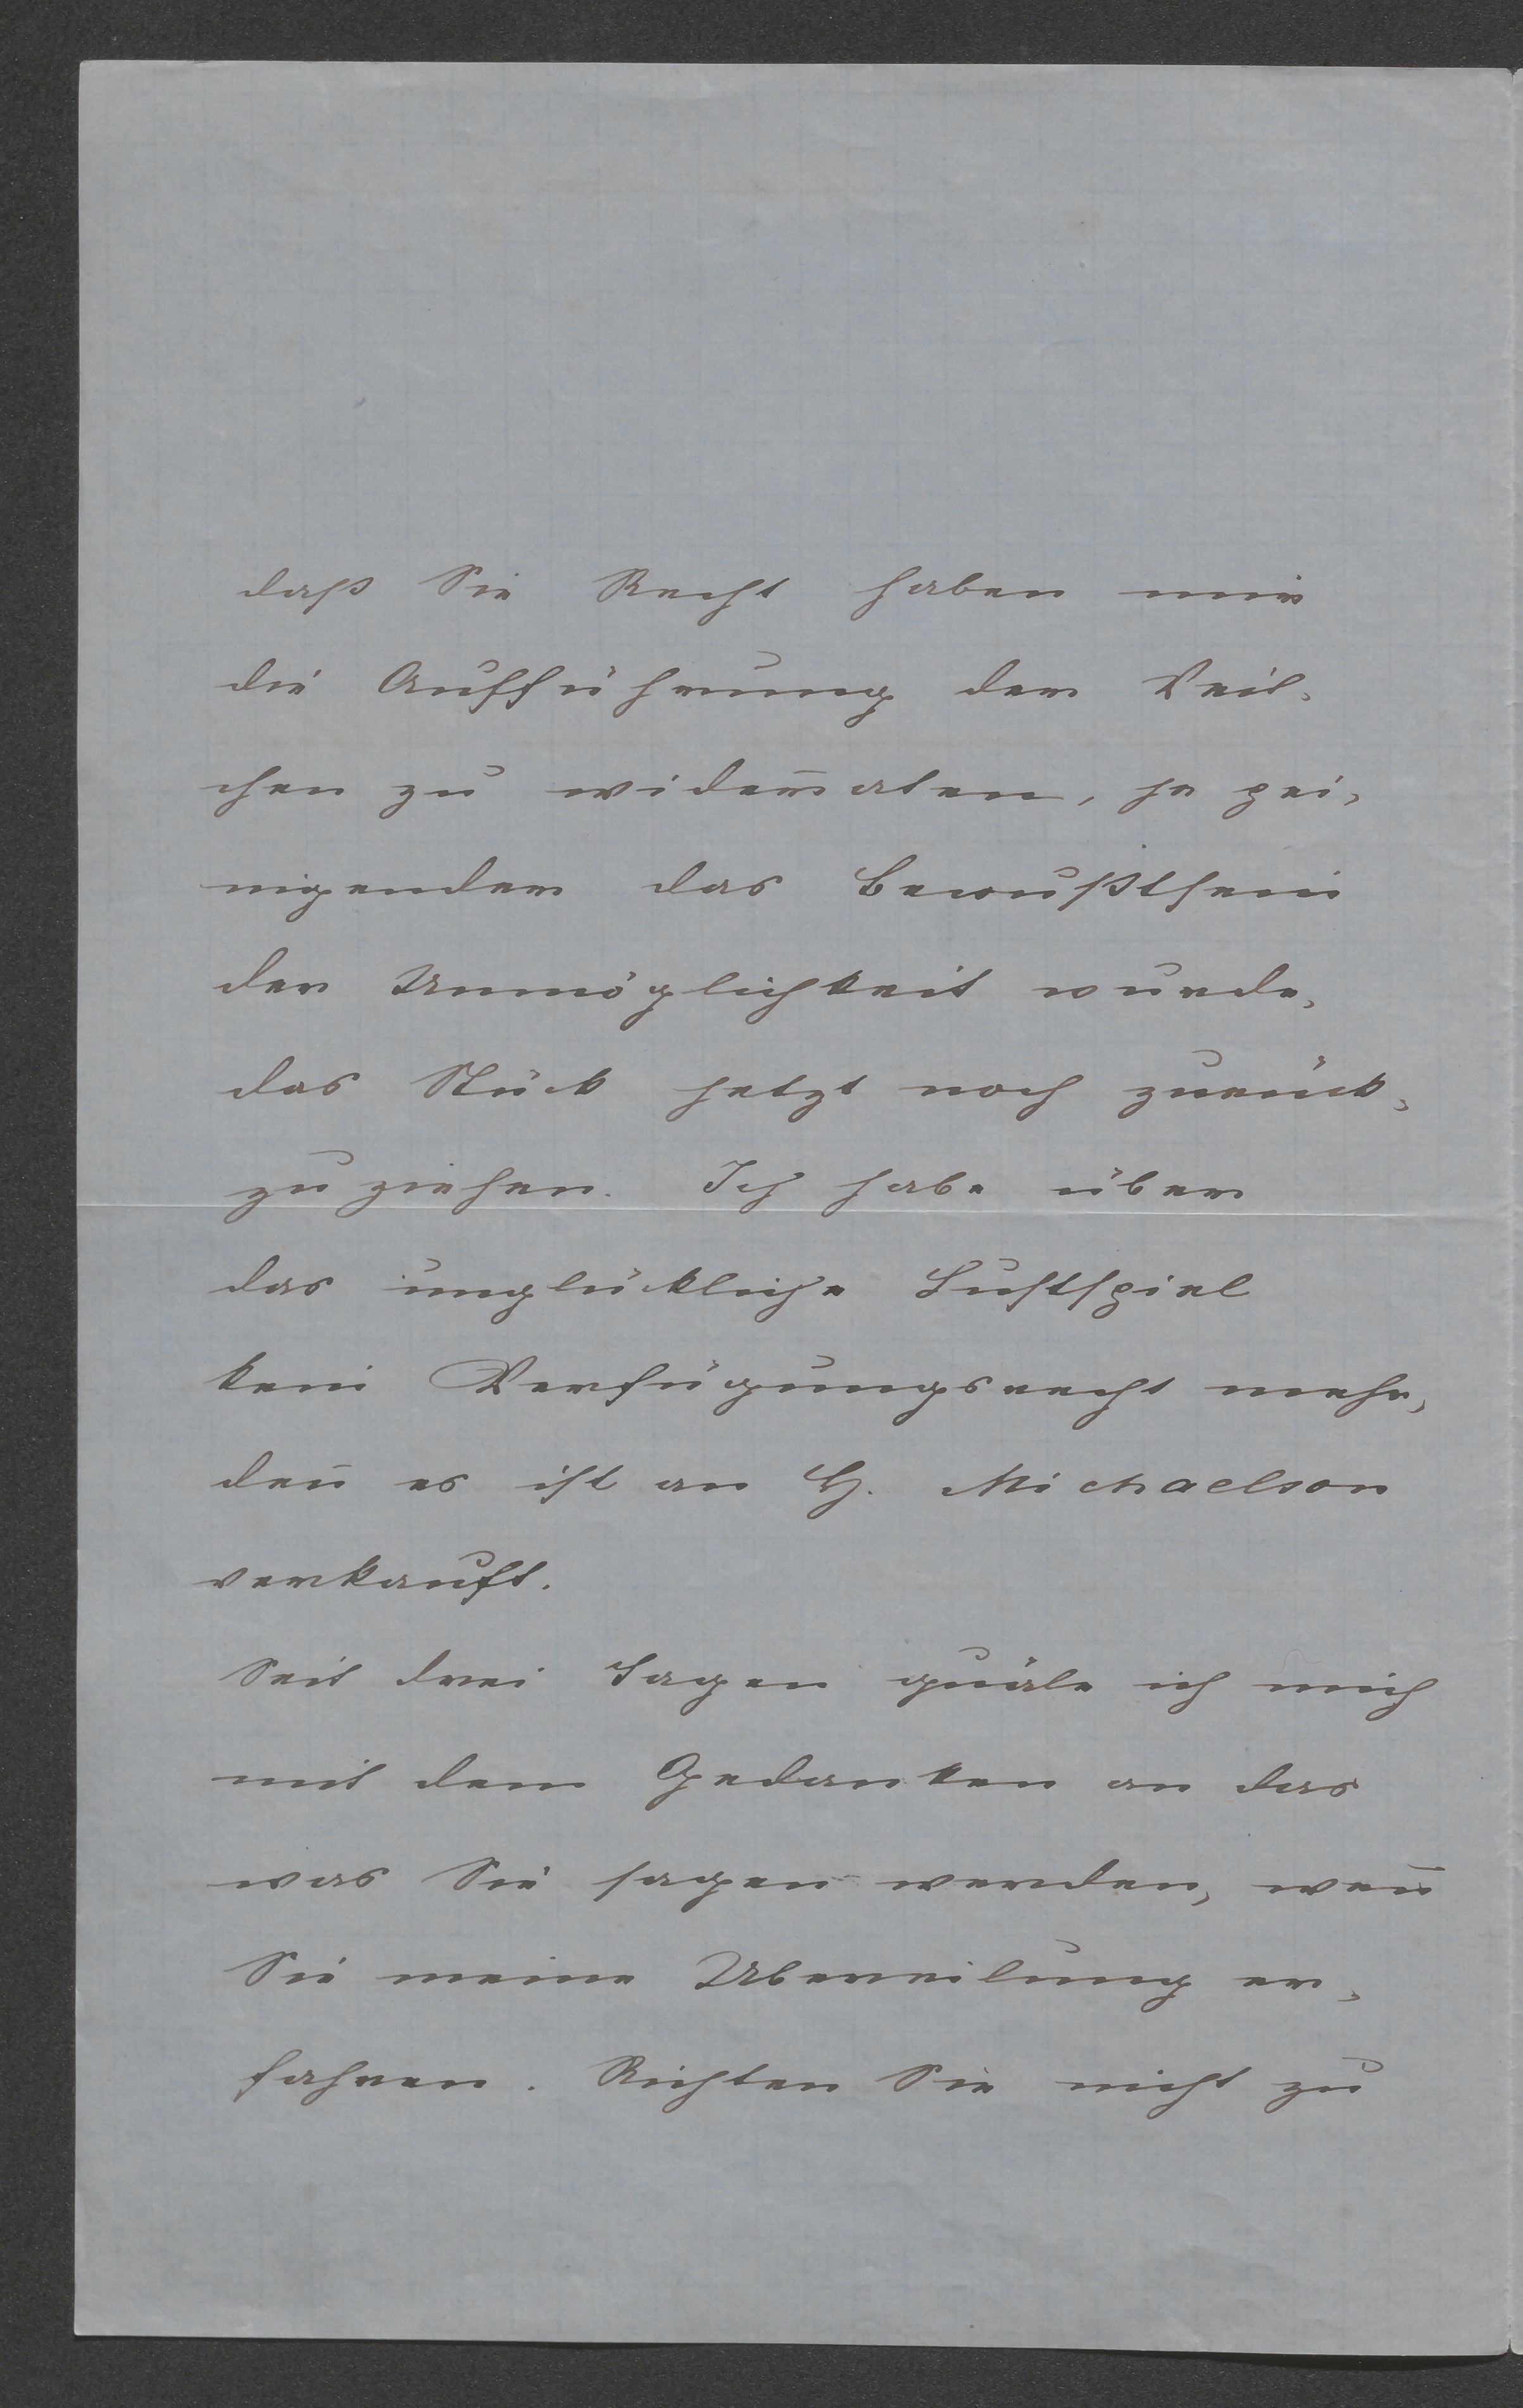 daß Sie Recht haben mir
die Aufführung der Veil-
chen zu widerraten, je pei-
nigender das Bewußtsein
der Unmöglichkeit wurde,
das Stück jetzt noch zurück-
zuziehen. Ich habe über
das unglückliche Lustspiel
kein Verfügungsrecht mehr,
deñ es ist an H. Michaelson
verkauft.
Seit drei Tagen quäle ich mich
mit dem Gedanken an das
was Sie sagen werden, weñ
Sie meine Übereilung er-
fahren. Richten Sie nicht zu